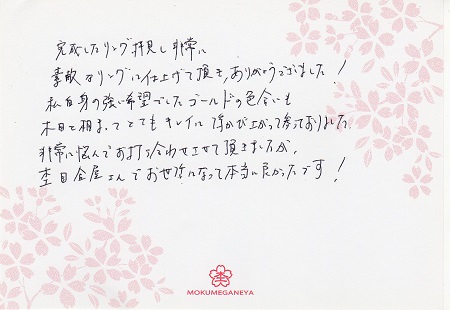 完成したリング拝見し非常に
素敵なリングに仕上げて頂き、ありがとうございました！
私自身の強い希望でしたゴールドの色合いも
木目と相まってとてもキレイに浮かび上がって参っておりました。
非常に悩んでお打ち合わせさせて頂きましたが、
杢目金屋さんでお世話になって本当に良かったです！
MOKUMEGANEYA